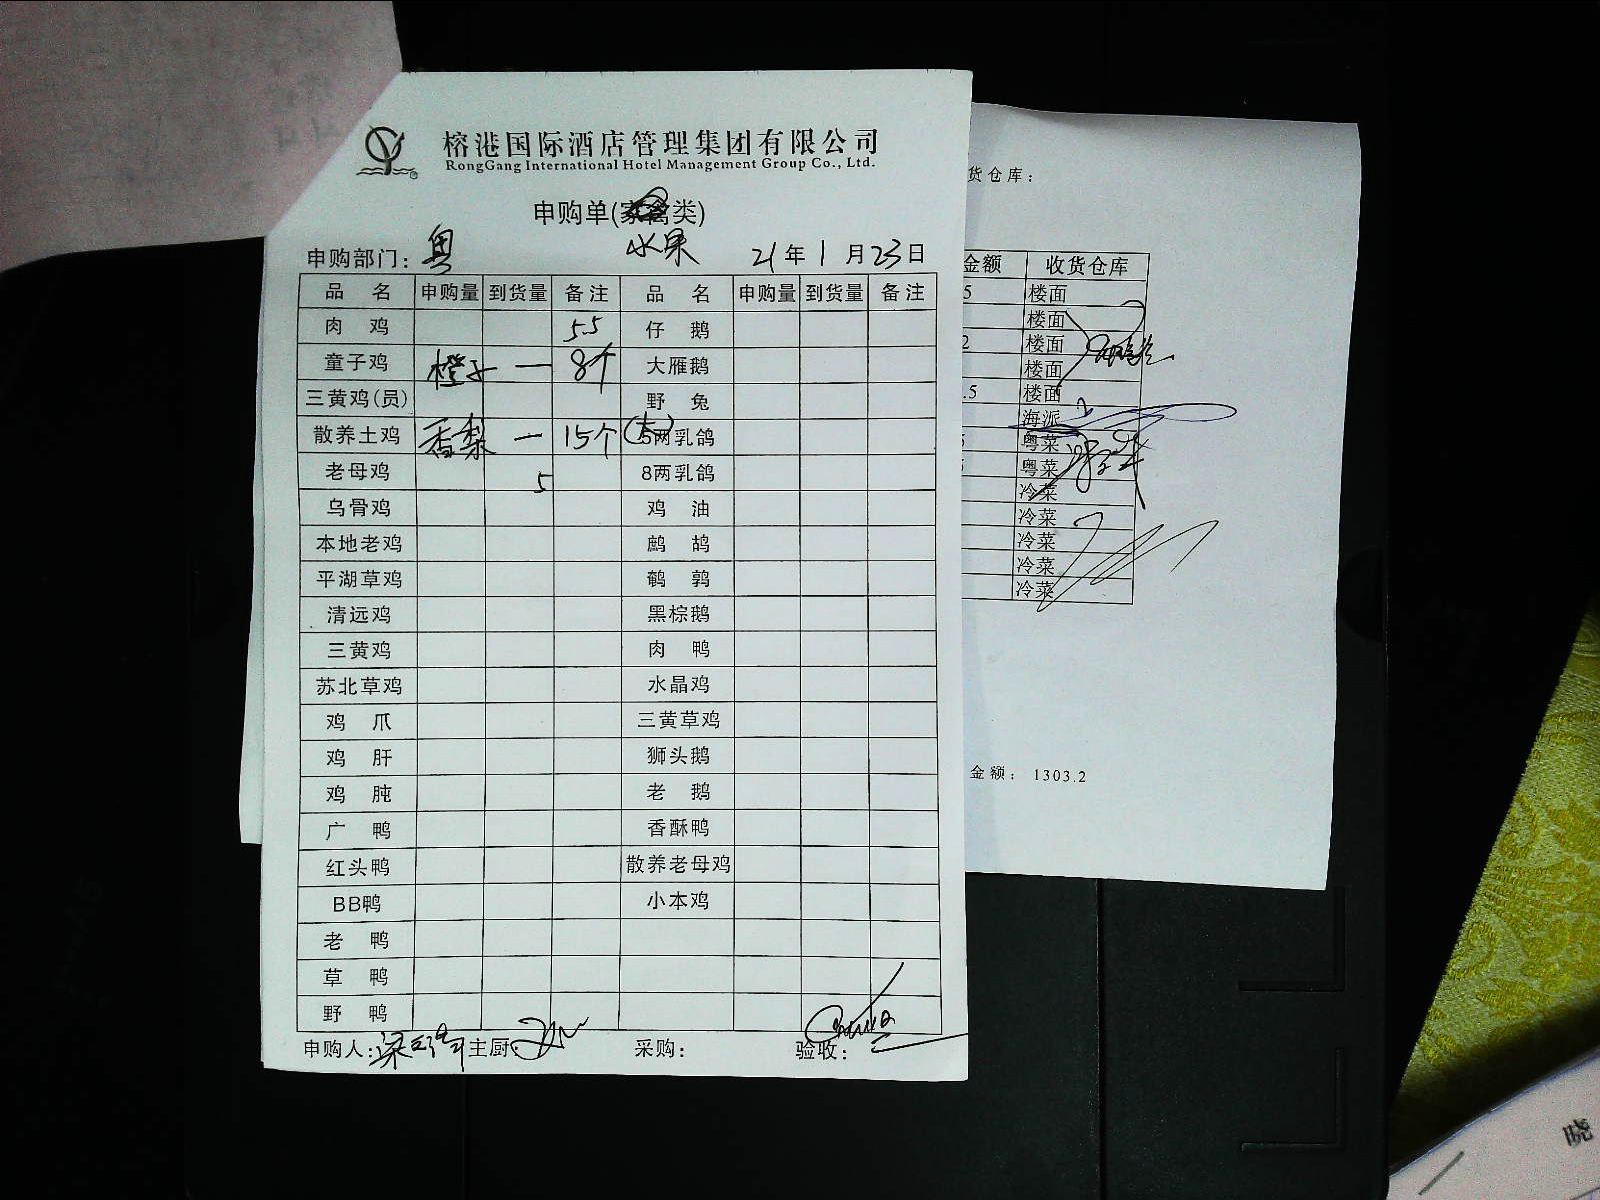 榕港国际酒店管理集团有限公司
RongGang International Hotel Management Group Co., Ltd.
申购单(家禽类)
水果
申购部门: 粤 21年1月23日
品名 申购量 到货量 备注 品名 申购量 到货量 备注
肉鸡 5.5 仔鹅
童子鸡 橙子 — 8个 大雁鹅
三黄鸡(员) 野兔
散养土鸡 香梨 — 15个 (大) 5两乳鸽
老母鸡 5 8两乳鸽
乌骨鸡 鸡油
本地老鸡 鹧鸪
平湖草鸡 鹌鹑
清远鸡 黑棕鹅
三黄鸡 肉鸭
苏北草鸡 水晶鸡
鸡爪 三黄草鸡
鸡肝 狮头鹅
鸡肫 老鹅
广鸭 香酥鸭
红头鸭 散养老母鸡
BB鸭 小本鸡
老鸭
草鸭
野鸭
申购人: 主厨: 采购: 验收:
货仓库:
金额 收货仓库
5 楼面
楼面
2 楼面
楼面
.5 楼面
海派
粤菜
粤菜
冷菜
冷菜
冷菜
冷菜
冷菜
金额: 1303.2